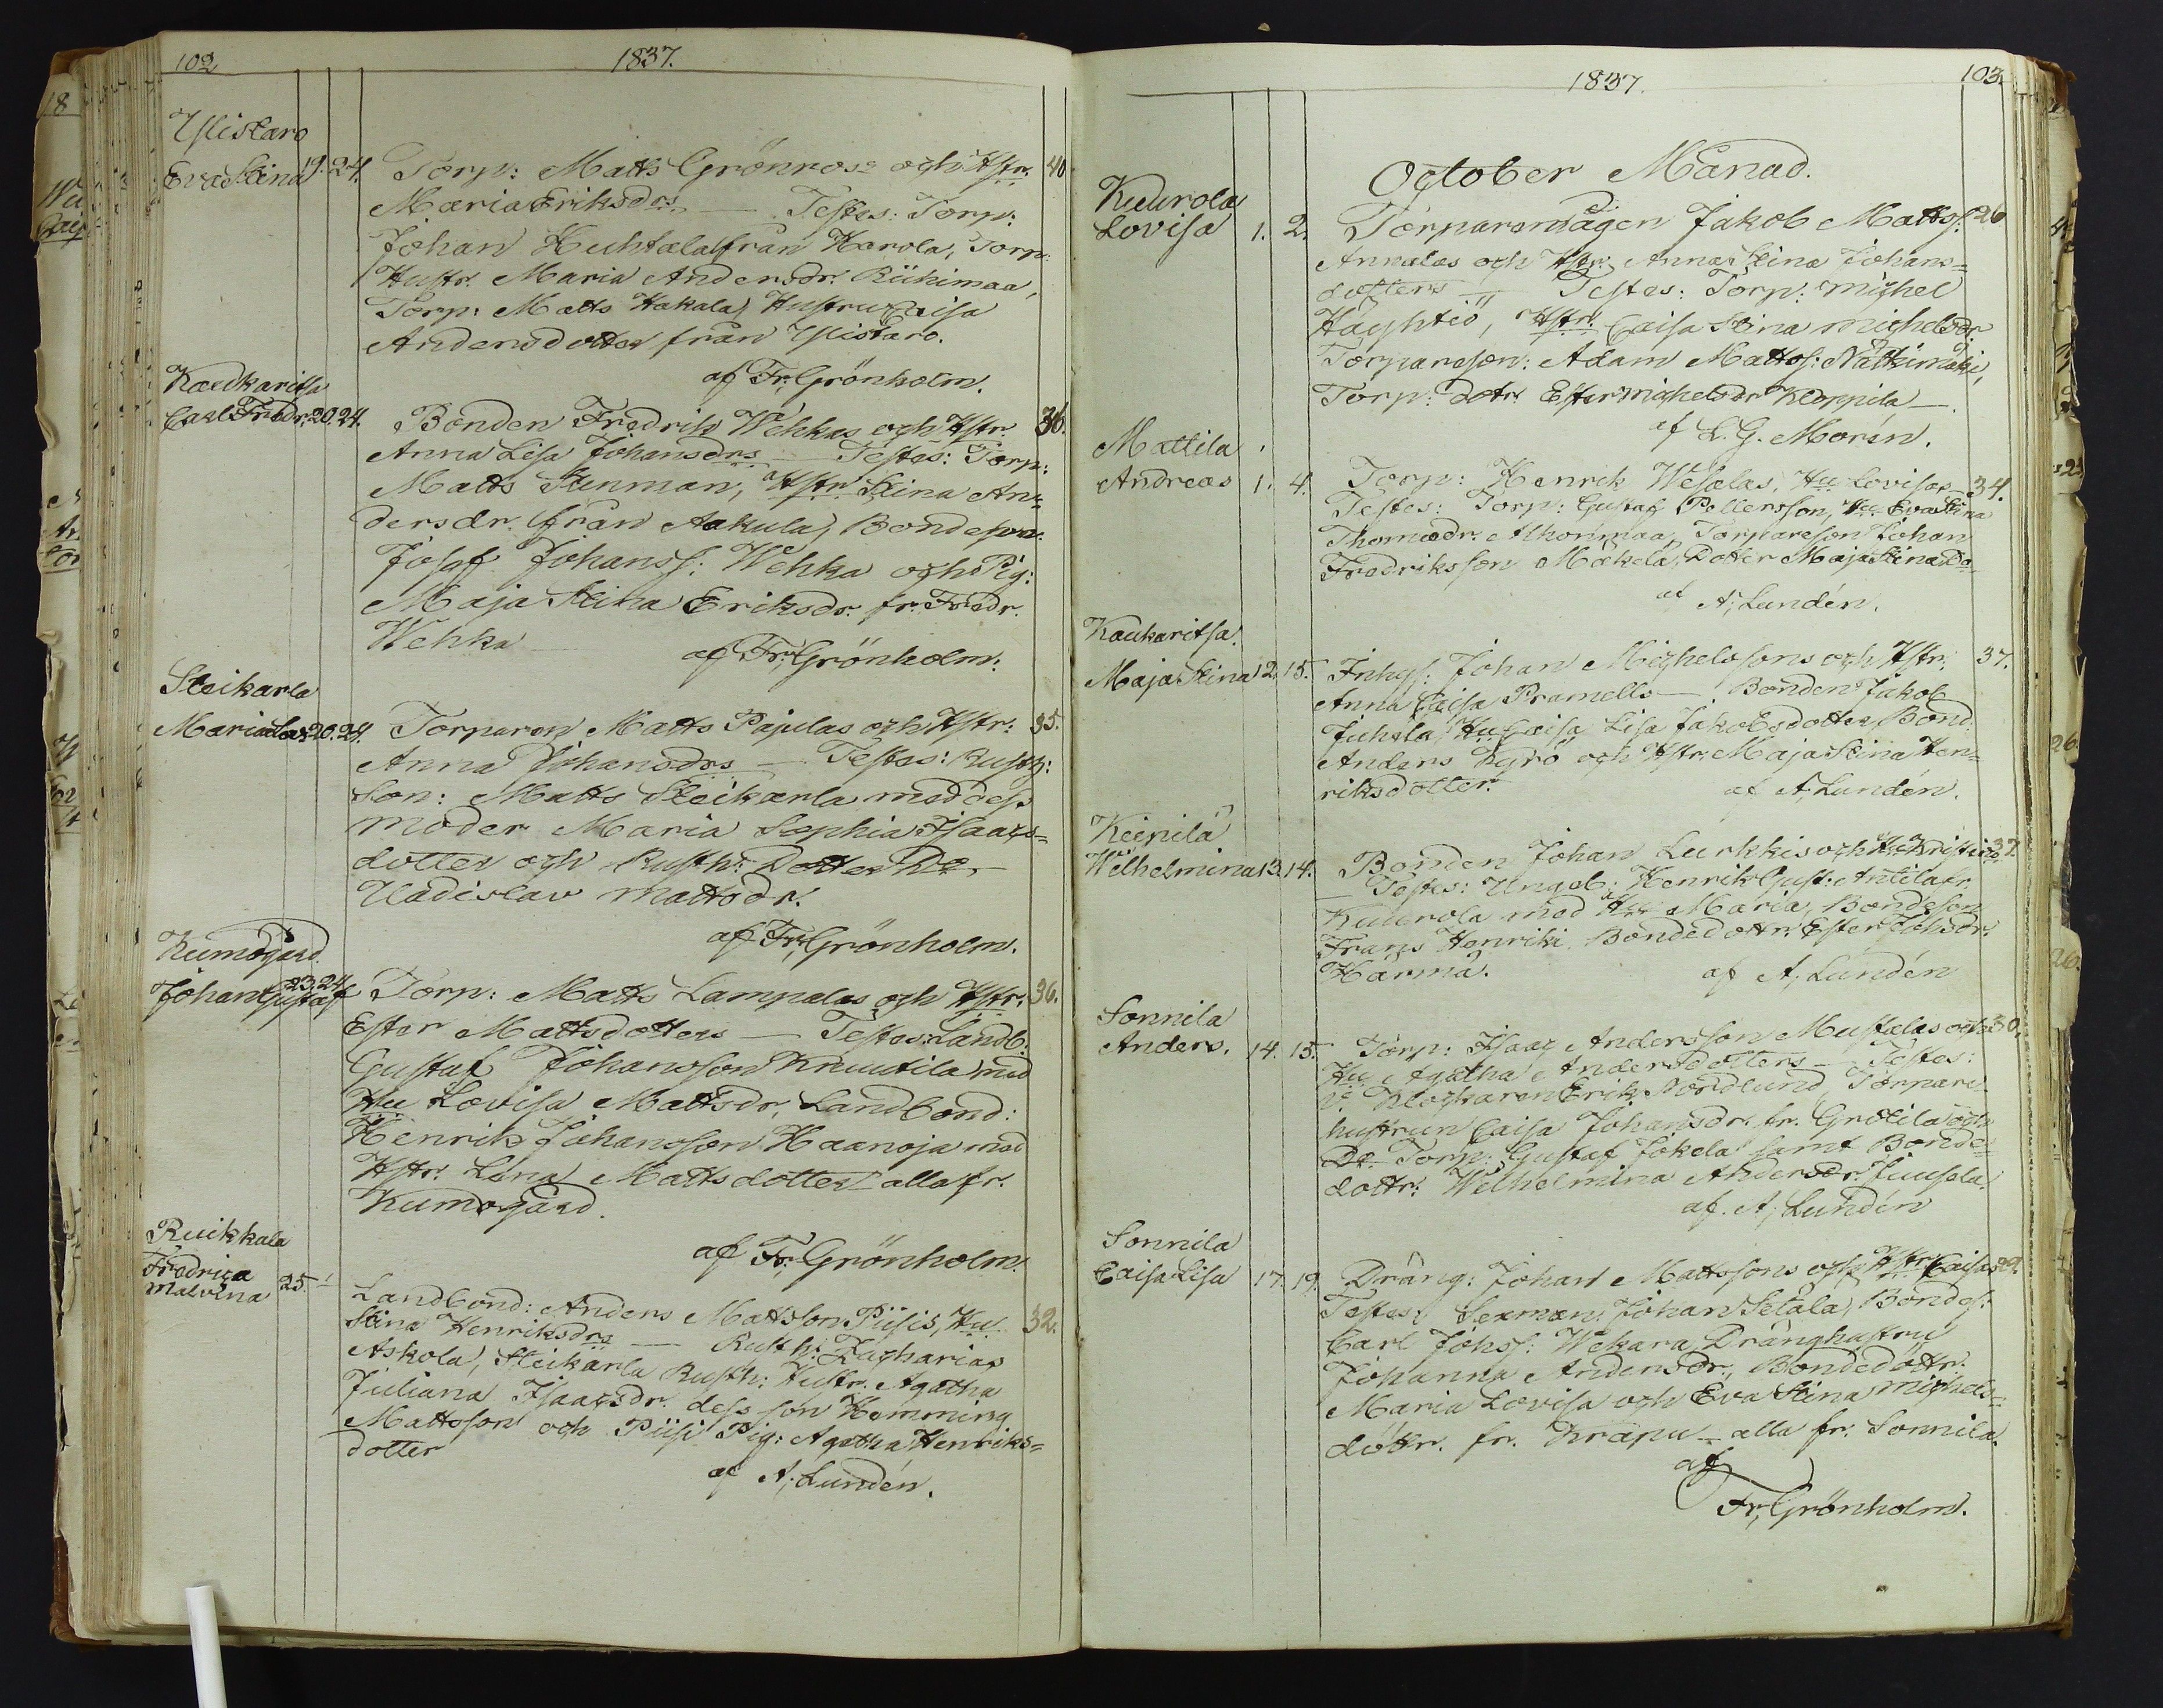 102
1837.
Ylistaro
Eva Stina 19. 24. Torp: Matts Grönroos och Hstr. 40
Maria Eriksdrs — Testes: Torp:
Johan Huhtala från Karola, Torp:
Hustr. Maria Andersdr. Riihimaa,
Torp: Matts Hakala, Hustru Caisa
Andersdotter från Ylistaro.
af Fr. Grönholm.
Kaukaritsa
Carl Fredr. 20. 24. Bonden Fredrik Wehkas och Hstr. 36.
Anna Lisa Johansdrs — Testes: Torp:
Matts Stenman, Hstr Stina An-
dersdr. från Aakula, Bondeson
Josef Johanss: Wehka och Pig:
Maja Stina Eriksdr. fr. Fredr.
Wehka —
af Fr. Grönholm.
Steikarla
Maria Lov. 20. 24. Torparen Matts Pajulas och Hstr: 35.
Anna Johansdrs — Testes: Rusth:
Son: Matts Steikarla med dess
moder Maria Sophia Isaacs=
dotter och Rusth: Dotter De
Uladislav Mattsdr.
af Fr. Grönholm.
Kumogård
Johan Gustaf 23. 24. Torp: Matts Lampalas och Hstr. 36.
Ester Mattsdotters — Testes: Landb:
Gustaf Johansson Knuutila med
Hu Lovisa Mattsdr, Landbond:
Henrik Johansson Haanoja med
Hstr. Lena Mattsdotter alla fr.
Kumogård.
af Fr. Grönholm.
Ruikkala
Fredrica
Malvina 25. Landbond: Anders Mattson Piisis, Hu 32.
Stina Henriksdrs — Rusth: Zacharias
Askola, Steikarla Rusth: Hustr. Agatha
Juliana Isaacsdr. dess son Hemming
Mattsson och Piisi Pig: Agatha Henriks=
dotter
af A. Lundén.
1837.
103.
October Månad.
Kuurola
Lovisa 1. 2. Torparemågen Jakob Mattss: 26
Annalas och Hstr. Anna Stina Johans=
dotters — Testes: Torp: Michel
Häyhtiö, Hstr. Caisa Stina Michelsdr
Torpareson: Adam Mattss: Nätkimäki,
Torp: dotr. Ester Michelsdr Kleppila —
af L. G. Morén.
Mattila
Andreas 1. 4. Torp: Henrik Wesalas, Hu Lovisas 34.
Testes: Torp: Gustaf Pettersson, Hu Eva Stina
Thomasdr. Alhonmaa, Torpareson Johan
Fredriksson Mäkelä, Dotter Maja Stina Do
af A. Lundén.
Kaukaritsa.
Maja Stina 12. 15. Inhys: Johan Michelssons och Hstr. 37.
Anna Caisa Pramells — Bonden Jakob
Juhola, Hu Caisa Lisa Jakobsdotter, Bond:
Anders Yrjö och Hstr. Maja Stina Hen=
riksdotter.
af A. Lundén.
Keinilä
Wilhelmina 13. 14. Bonden Johan Lurkkis och Hu Kristina 37.
— Testes: Ungeb: Henrik Gust: Antila fr.
Kuurola med Hu Maria, Bondeson
Frans Henriki, Bondedottr. Ester Johsdr.
Härmä.
af A. Lundén
Sonnila
Anders. 14. 15. Torp: Isaac Andersson Mustalas och 30.
Hu Agatha Andersdotters — Testes:
V. Klockaren Erik Nordlund, Torpare
hustrun Caisa Johansdr. fr. Grötilä och
De Torp: Gustaf Jokela samt Bonde
dottr: Wilhelmina Andersdr. Juusela.
af. A. Lundén
Sonnila
Caisa Lisa 17. 19. Dräng: Johan Mattssons och Hstr. Caisas 29.
Testes: Sexman. Johan Setälä, Bondes:
Carl Johss: Wekara, Dränghustru
Johanna Andersdr., Bondedöttr.
Maria Lovisa och Eva Stina Michels=
döttr. fr. Krapu — alla fr. Sonnila.
af
Fr. Grönholm.